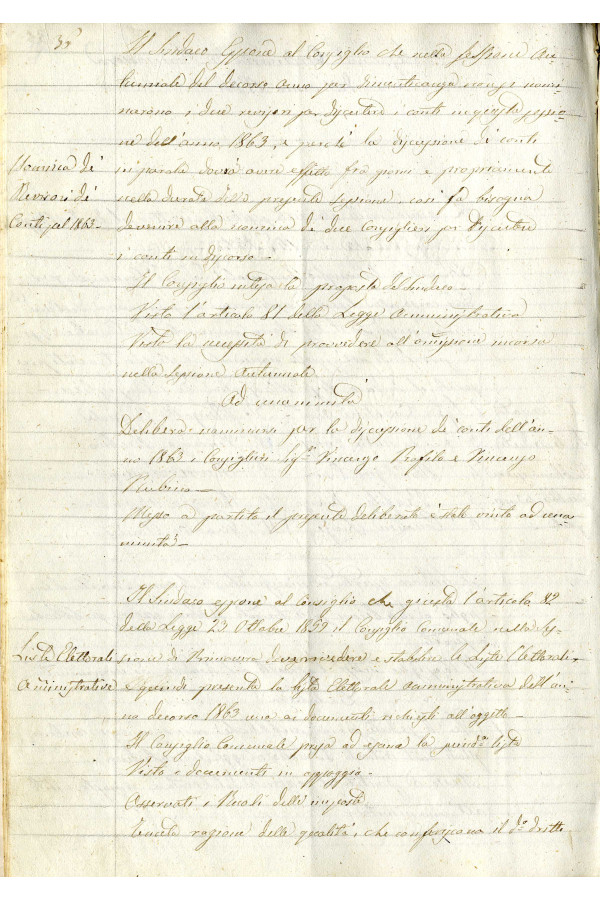 Il Sindaco espone al Consiglio che nella sessione Au-
tunnale del decorso anno per dimenticanza non si nomi
narono i due revisori per discutere i conti in questa sessio-
ne dell'anno 1863, e perchè la discussione di conti
Nomina di
in parola dovrà avere effetto fra giorni e propriamente
Revisori di
nella durata della presente sessione, così fa bisogna
Conti pel 1863.
devenire alla nomina di due Consiglieri per discutere
i conti in discorso -
Il Consiglio intesa la proposta del Sindaco -
Visto l'articolo 81 della Legge Amministrativa
Visto la necessità di provvedere all'omissione incorsa
nella sessione Autunnale
Ad unanimità
Delibera nominarsi per la discussione de' conti dell'an-
no 1863 i Consiglieri Sigri Vincenzo Profilo e Vincenzo
Rubino -
Messo a partito il presente deliberato è stato vinto ad una
nimità -
Il Sindaco espone al Consiglio che giusta l'articolo 82
della Legge 23 Ottobre 1859 il Consiglio Comunale nella Ses-
Lista Elettorali
sione di Primavera deve rivedere e stabilire le liste Elettorali,
Amministrative
e quindi presenta la lista Elettorale Amministrativa dell'an
no decorso 1863 una ai documenti richiesti all'oggetto -
Il Consiglio Comunale presa ad esame la lista
Visto i documenti in appoggio -
Osservati i Ruoli delle imposte
Tenuta ragione delle qualità, che conferiscono il do dritto